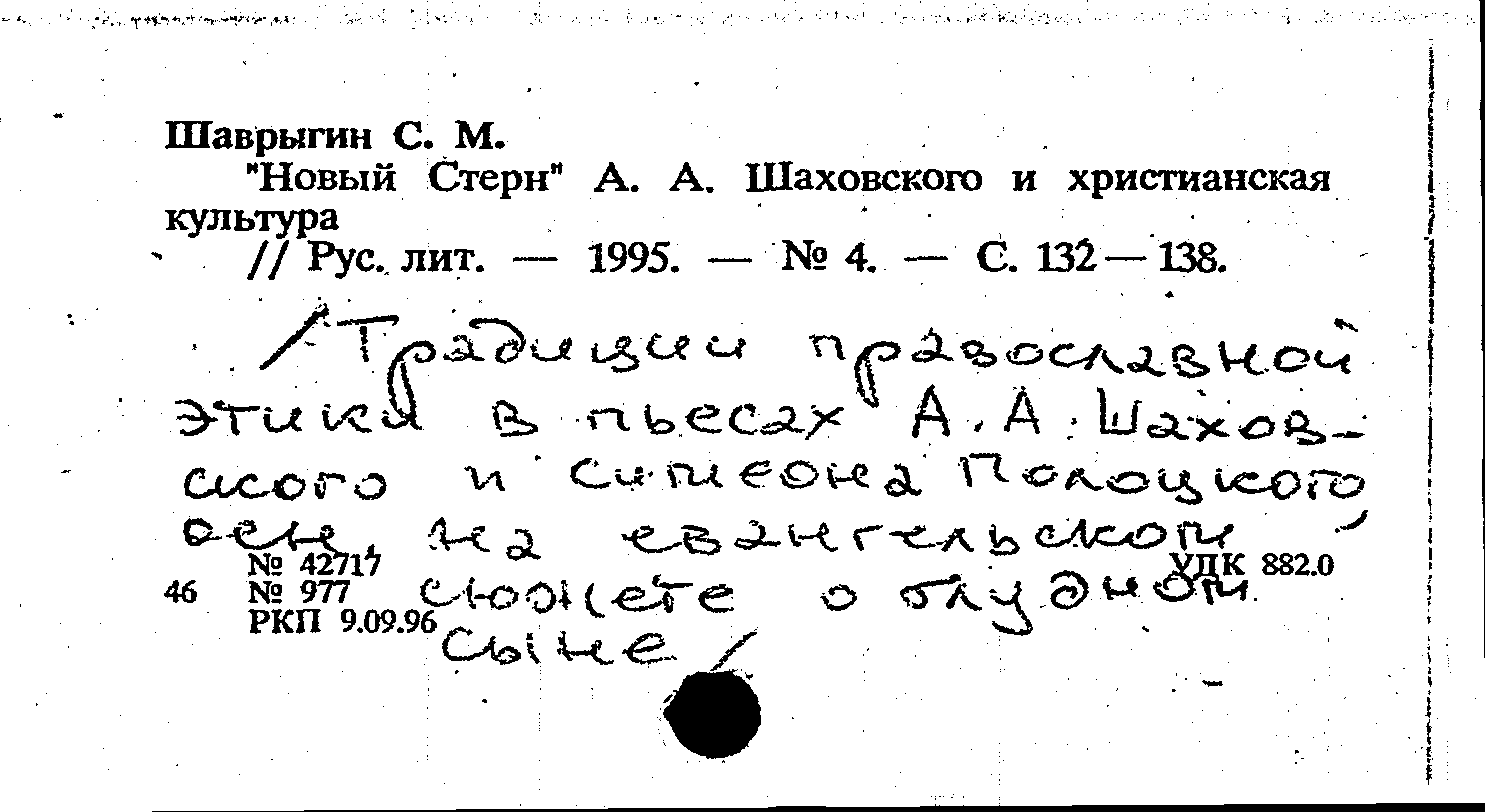 Шаврыгин С. М.
"Новый Стерн" А. А. Шаховского и христианская
культура
// Рус. лит. — 1995. — № 4. — С. 132—138.
/Традиции православной
этики в пьесах А. А. Шахов-
ского и Симеона Полоцкого,
осн. на евангельском
№ 42717 УДК 882.0
46 № 977 сюжете о блудном
РКП 9.09.96
сыне/